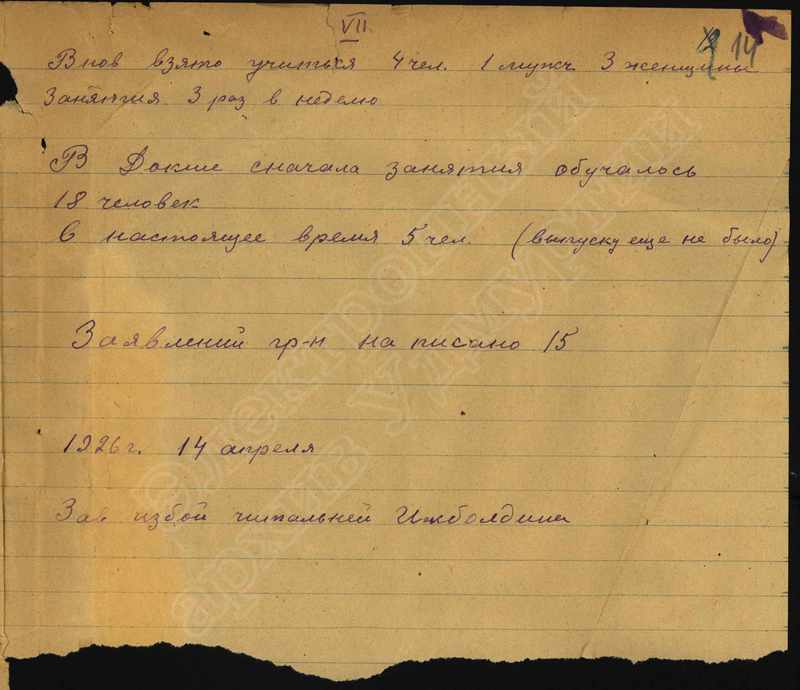 VII
14
Внов взято учиться 4 чел. 1 мужч. 3 женщины
Занятия. 3 раз в неделю
В сначала занятия обучалось
18 человек
в настоящее время 5 чел. (выпуску еще не было)
Заявлений гр-н написано 15
1926 г. 14 апреля
Зав избой читальней Ижболдина
Электронный
архив Удмуртии